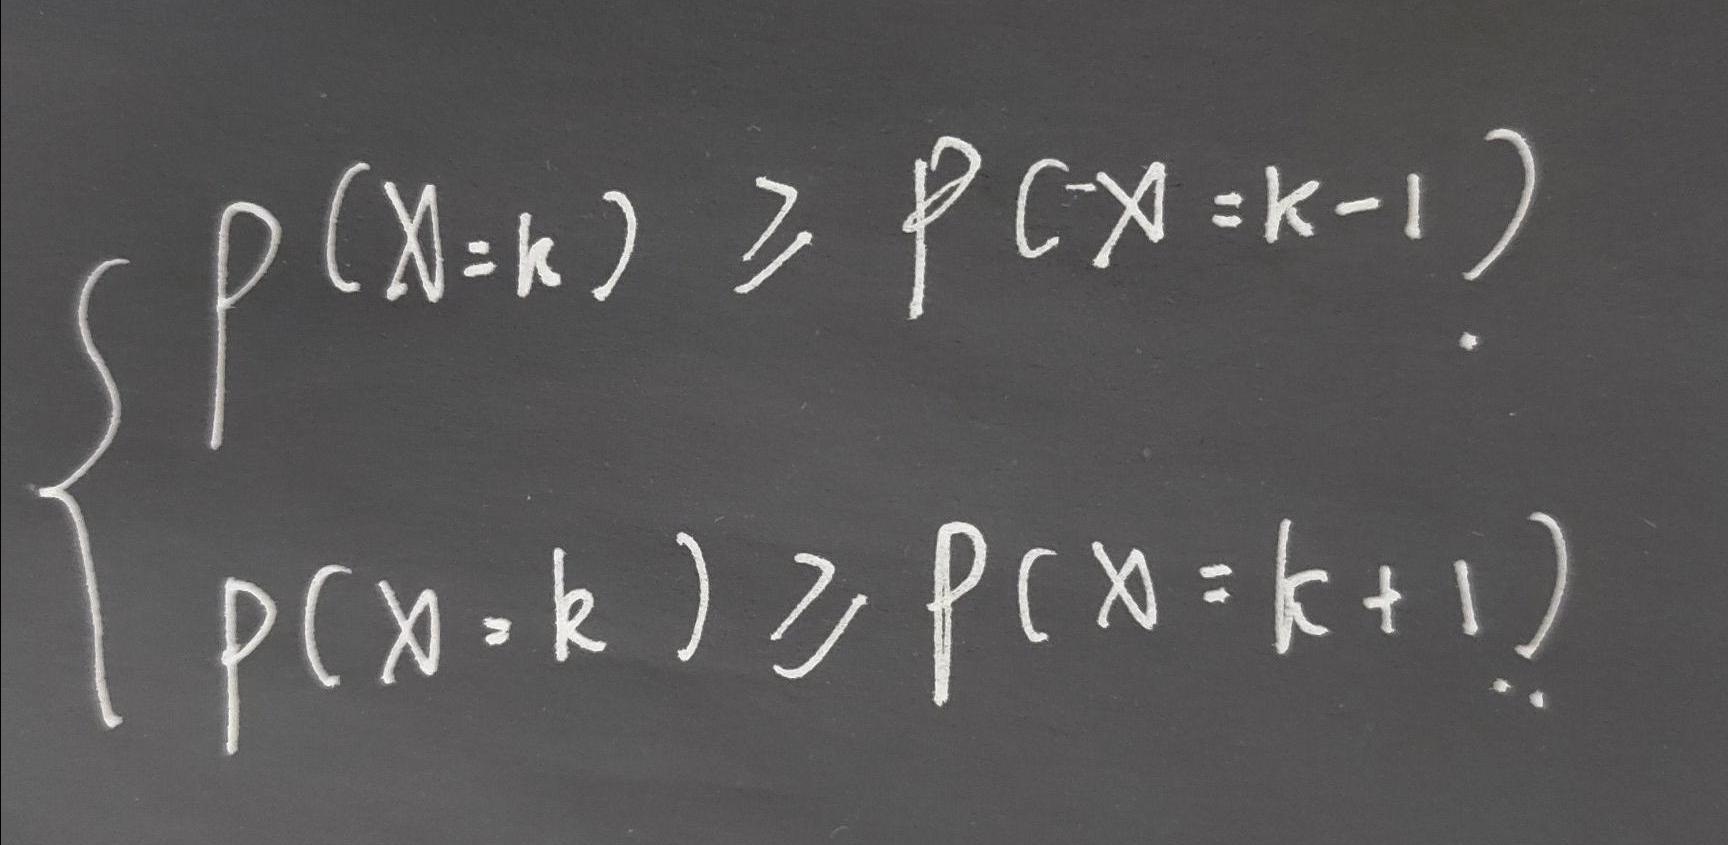 P(X=k) ≥ P(X=k-1)
P(X=k) ≥ P(X=k+1)